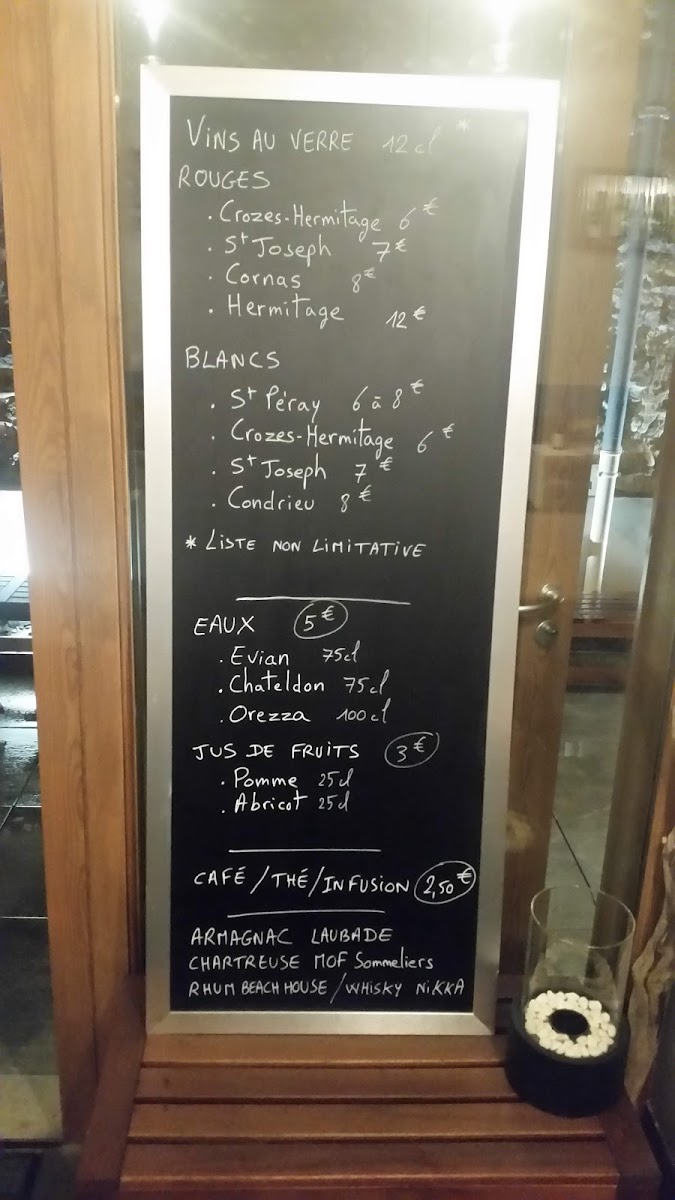 VINS AU VERRE 12 cl *
ROUGES
. Crozes-Hermitage 6 €
. St Joseph 7 €
. Cornas 8 €
. Hermitage 12 €
BLANCS
. St Péray 6 à 8 €
. Crozes-Hermitage 6 €
. St Joseph 7 €
. Condrieu 8 €
* LISTE NON LIMITATIVE
EAUX 5 €
. Evian 75cl
. Chateldon 75cl
. Orezza 100cl
JUS DE FRUITS 3 €
. Pomme 25cl
. Abricot 25cl
CAFÉ / THÉ / INFUSION 2,50 €
ARMAGNAC LAUBADE
CHARTREUSE MOF Sommeliers
RHUM BEACH HOUSE / WHISKY NIKKA